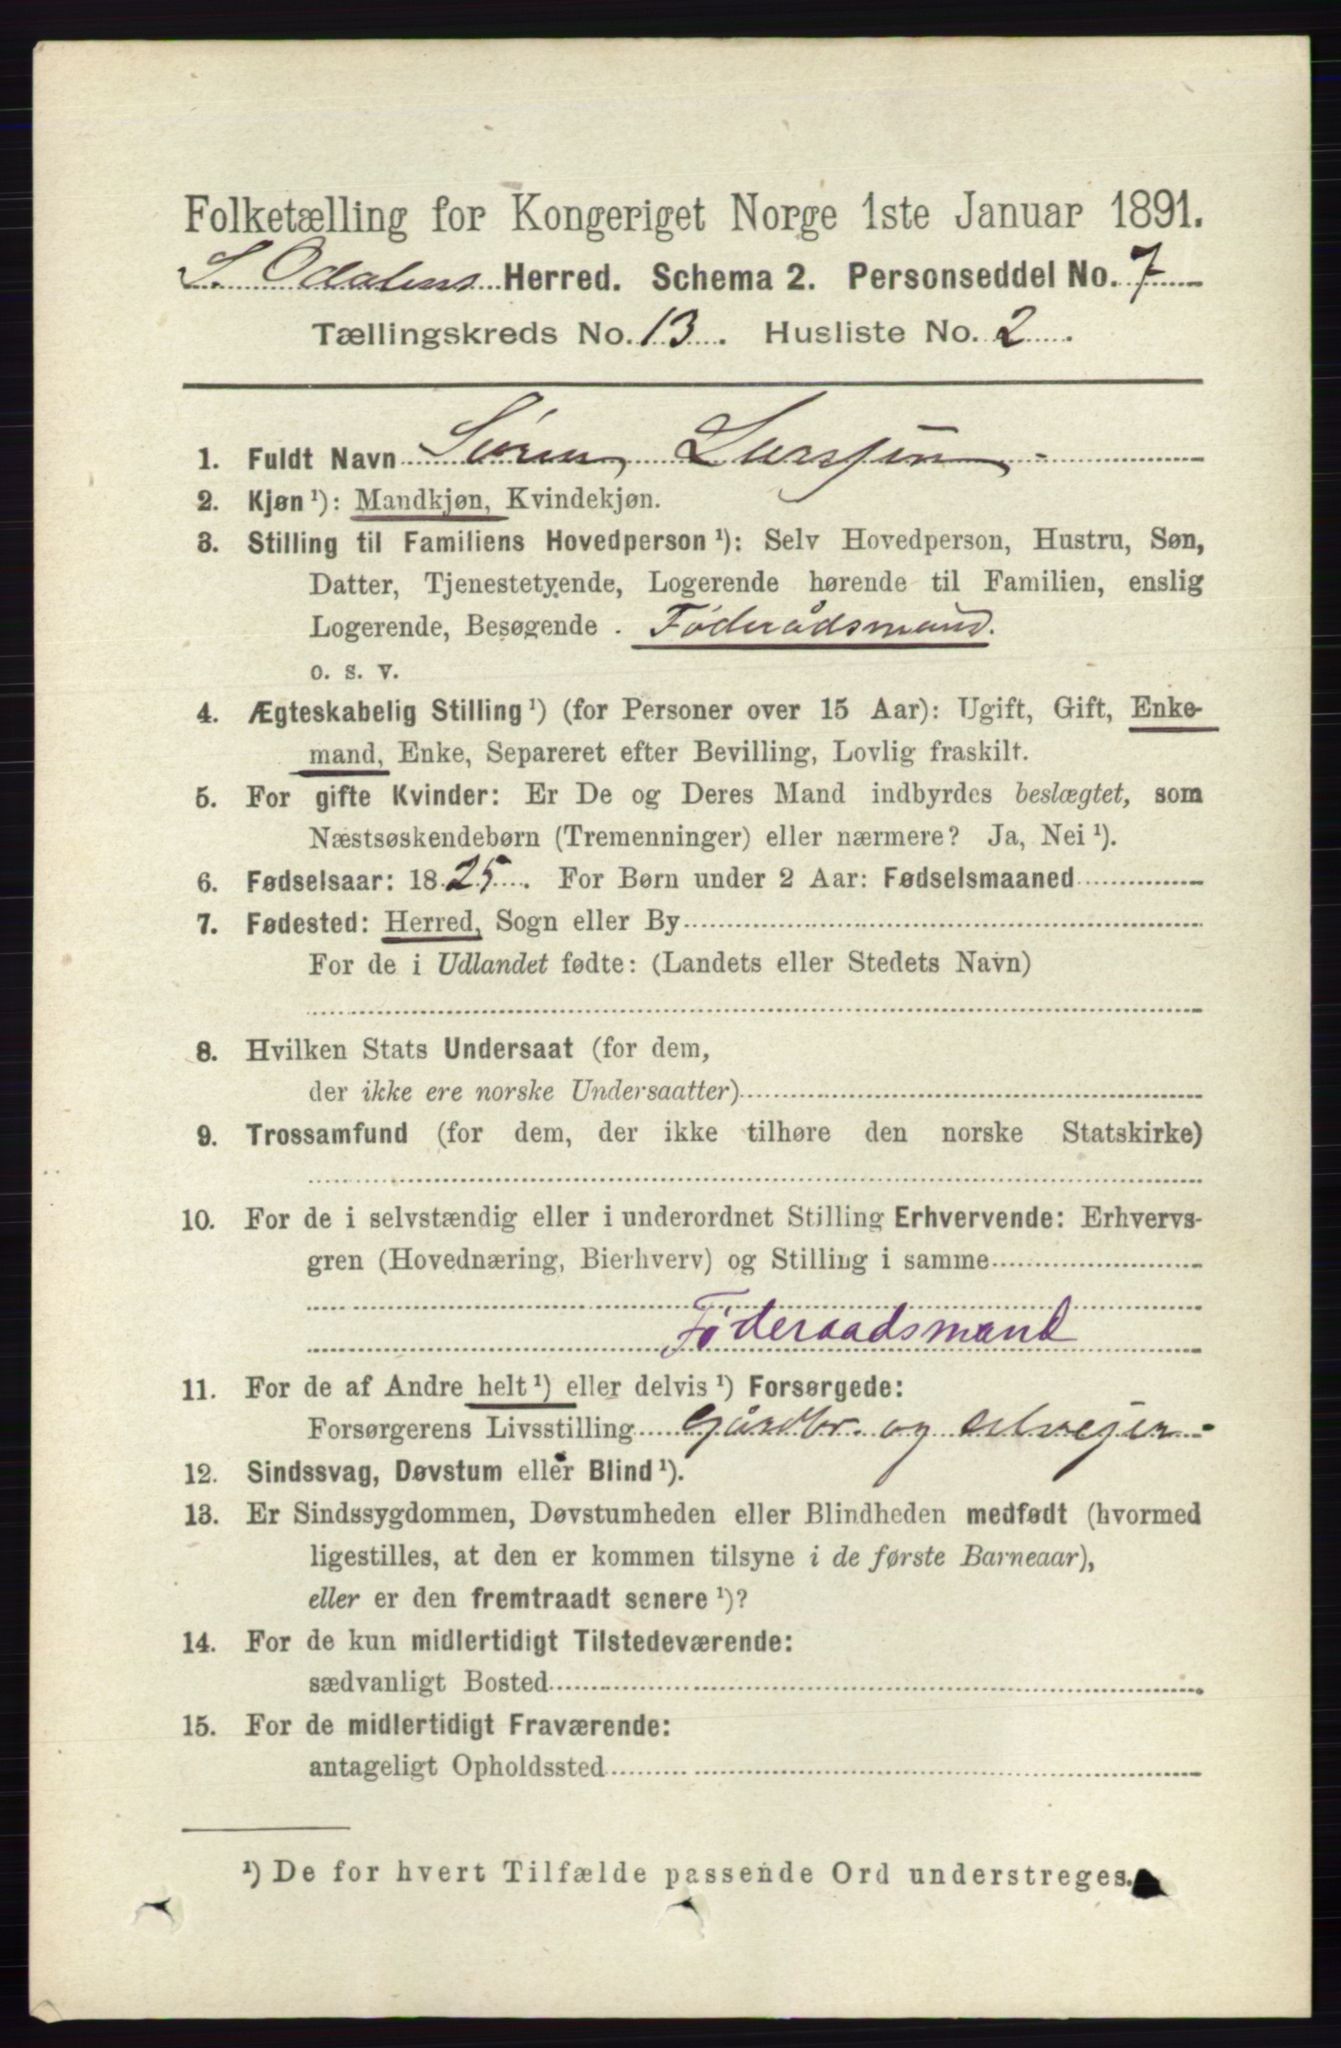 Folketælling for Kongeriget Norge 1ste Januar 1891.
S. Odalens Herred. Schema 2. Personseddel No. 7
Tællingskreds No. 13. Husliste No. 2
1. Fuldt Navn Søren Larssen
2. Kjøn ¹): Mandkjøn, Kvindekjøn.
3. Stilling til Familiens Hovedperson ¹): Selv Hovedperson, Hustru, Søn,
Datter, Tjenestetyende, Logerende hørende til Familien, enslig
Logerende, Besøgende . Føderådsmand.
o. s. v.
4. Ægteskabelig Stilling ¹) (for Personer over 15 Aar): Ugift, Gift, Enke-
mand, Enke, Separeret efter Bevilling, Lovlig fraskilt.
5. For gifte Kvinder: Er De og Deres Mand indbyrdes beslægtet, som
Næstsøskendebørn (Tremenninger) eller nærmere? Ja, Nei ¹).
6. Fødselsaar: 1825. For Børn under 2 Aar: Fødselsmaaned
7. Fødested: Herred, Sogn eller By
For de i Udlandet fødte: (Landets eller Stedets Navn)
8. Hvilken Stats Undersaat (for dem,
der ikke ere norske Undersaatter)
9. Trossamfund (for dem, der ikke tilhøre den norske Statskirke)
10. For de i selvstændig eller i underordnet Stilling Erhvervende: Erhvervs-
gren (Hovednæring, Bierhverv) og Stilling i samme
Føderaadsmand
11. For de af Andre helt ¹) eller delvis ¹) Forsørgede:
Forsørgerens Livsstilling Gårdbr. og selvejer
12. Sindssvag, Døvstum eller Blind ¹).
13. Er Sindssygdommen, Døvstumheden eller Blindheden medfødt (hvormed
ligestilles, at den er kommen tilsyne i de første Barneaar),
eller er den fremtraadt senere ¹)?
14. For de kun midlertidigt Tilstedeværende:
sædvanligt Bosted
15. For de midlertidigt Fraværende:
antageligt Opholdssted
¹) De for hvert Tilfælde passende Ord understreges.